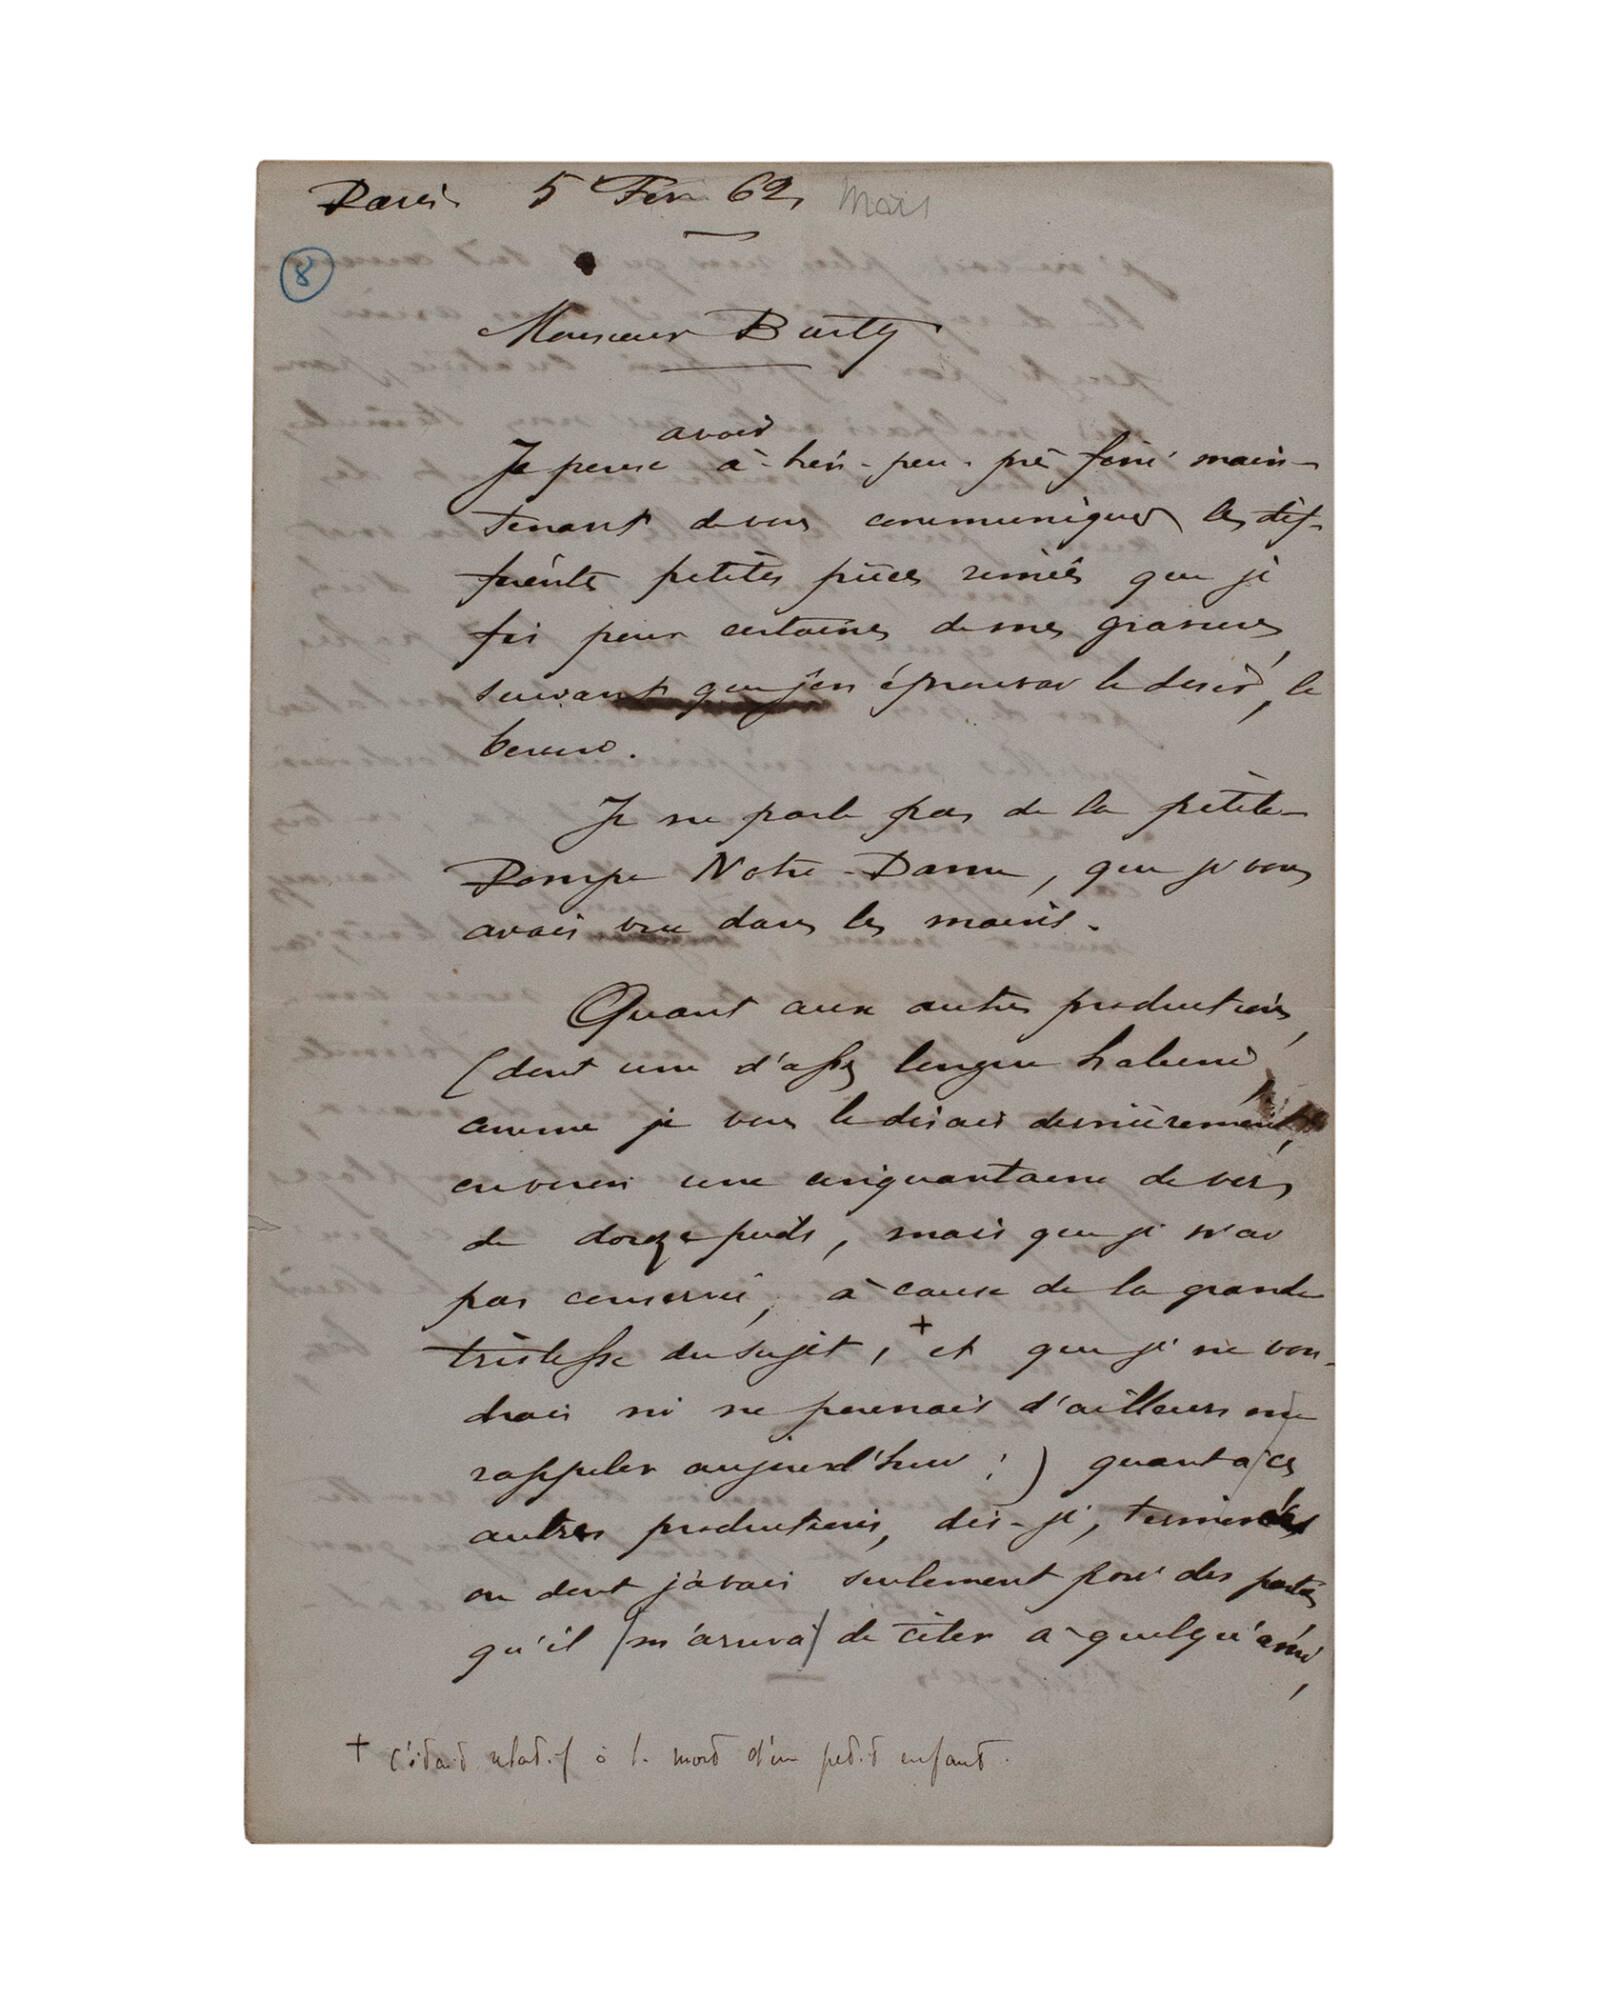 Paris 5 Fev. 62, Mars
8
Monsieur Burty
avoir
Je pense à-très-peu-près fini main-
tenant de vous communiquer les dif-
férentes petites pièces rimées que je
fis pour certaines de mes gravures,
suivant que j'en éprouvai le desir, le
besoin.
Je ne parle pas de la petite
Pompe Notre-Dame, que je vous
avais vue dans les mains.
Quant aux autres productions,
(dont une d'assez longue haleine,
comme je vous le disais dernièrement,
environ une cinquantaine de vers
de douze pieds, mais que je n'ai
pas conservée, à cause de la grande
tristesse du sujet, + et que je ne vou-
drais ni ne pourrais d'ailleurs me
rappeler aujourd'hui;) quant à ces
autres productions, dis-je, terminées
ou dont j'avais seulement posé des parties
qu'il (m'arriva) de citer à quelqu'ami,
+ c'était relatif à la mort d'un petit enfant.